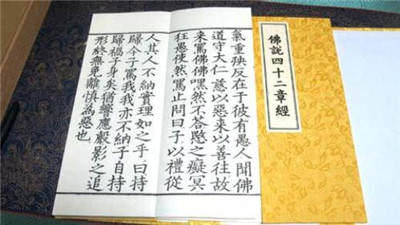 佛說四十二章經
氣重殃反在于彼有愚人聞佛
道守大仁慈以惡來以善往故
來罵佛佛嘿然不答愍之癡冥
狂愚使然罵止問曰子以禮從
人其人不納實理如之乎曰持
歸今子罵我我亦不納子自持
歸禍子身矣猶響應聲影之追
形終無免離慎為惡也